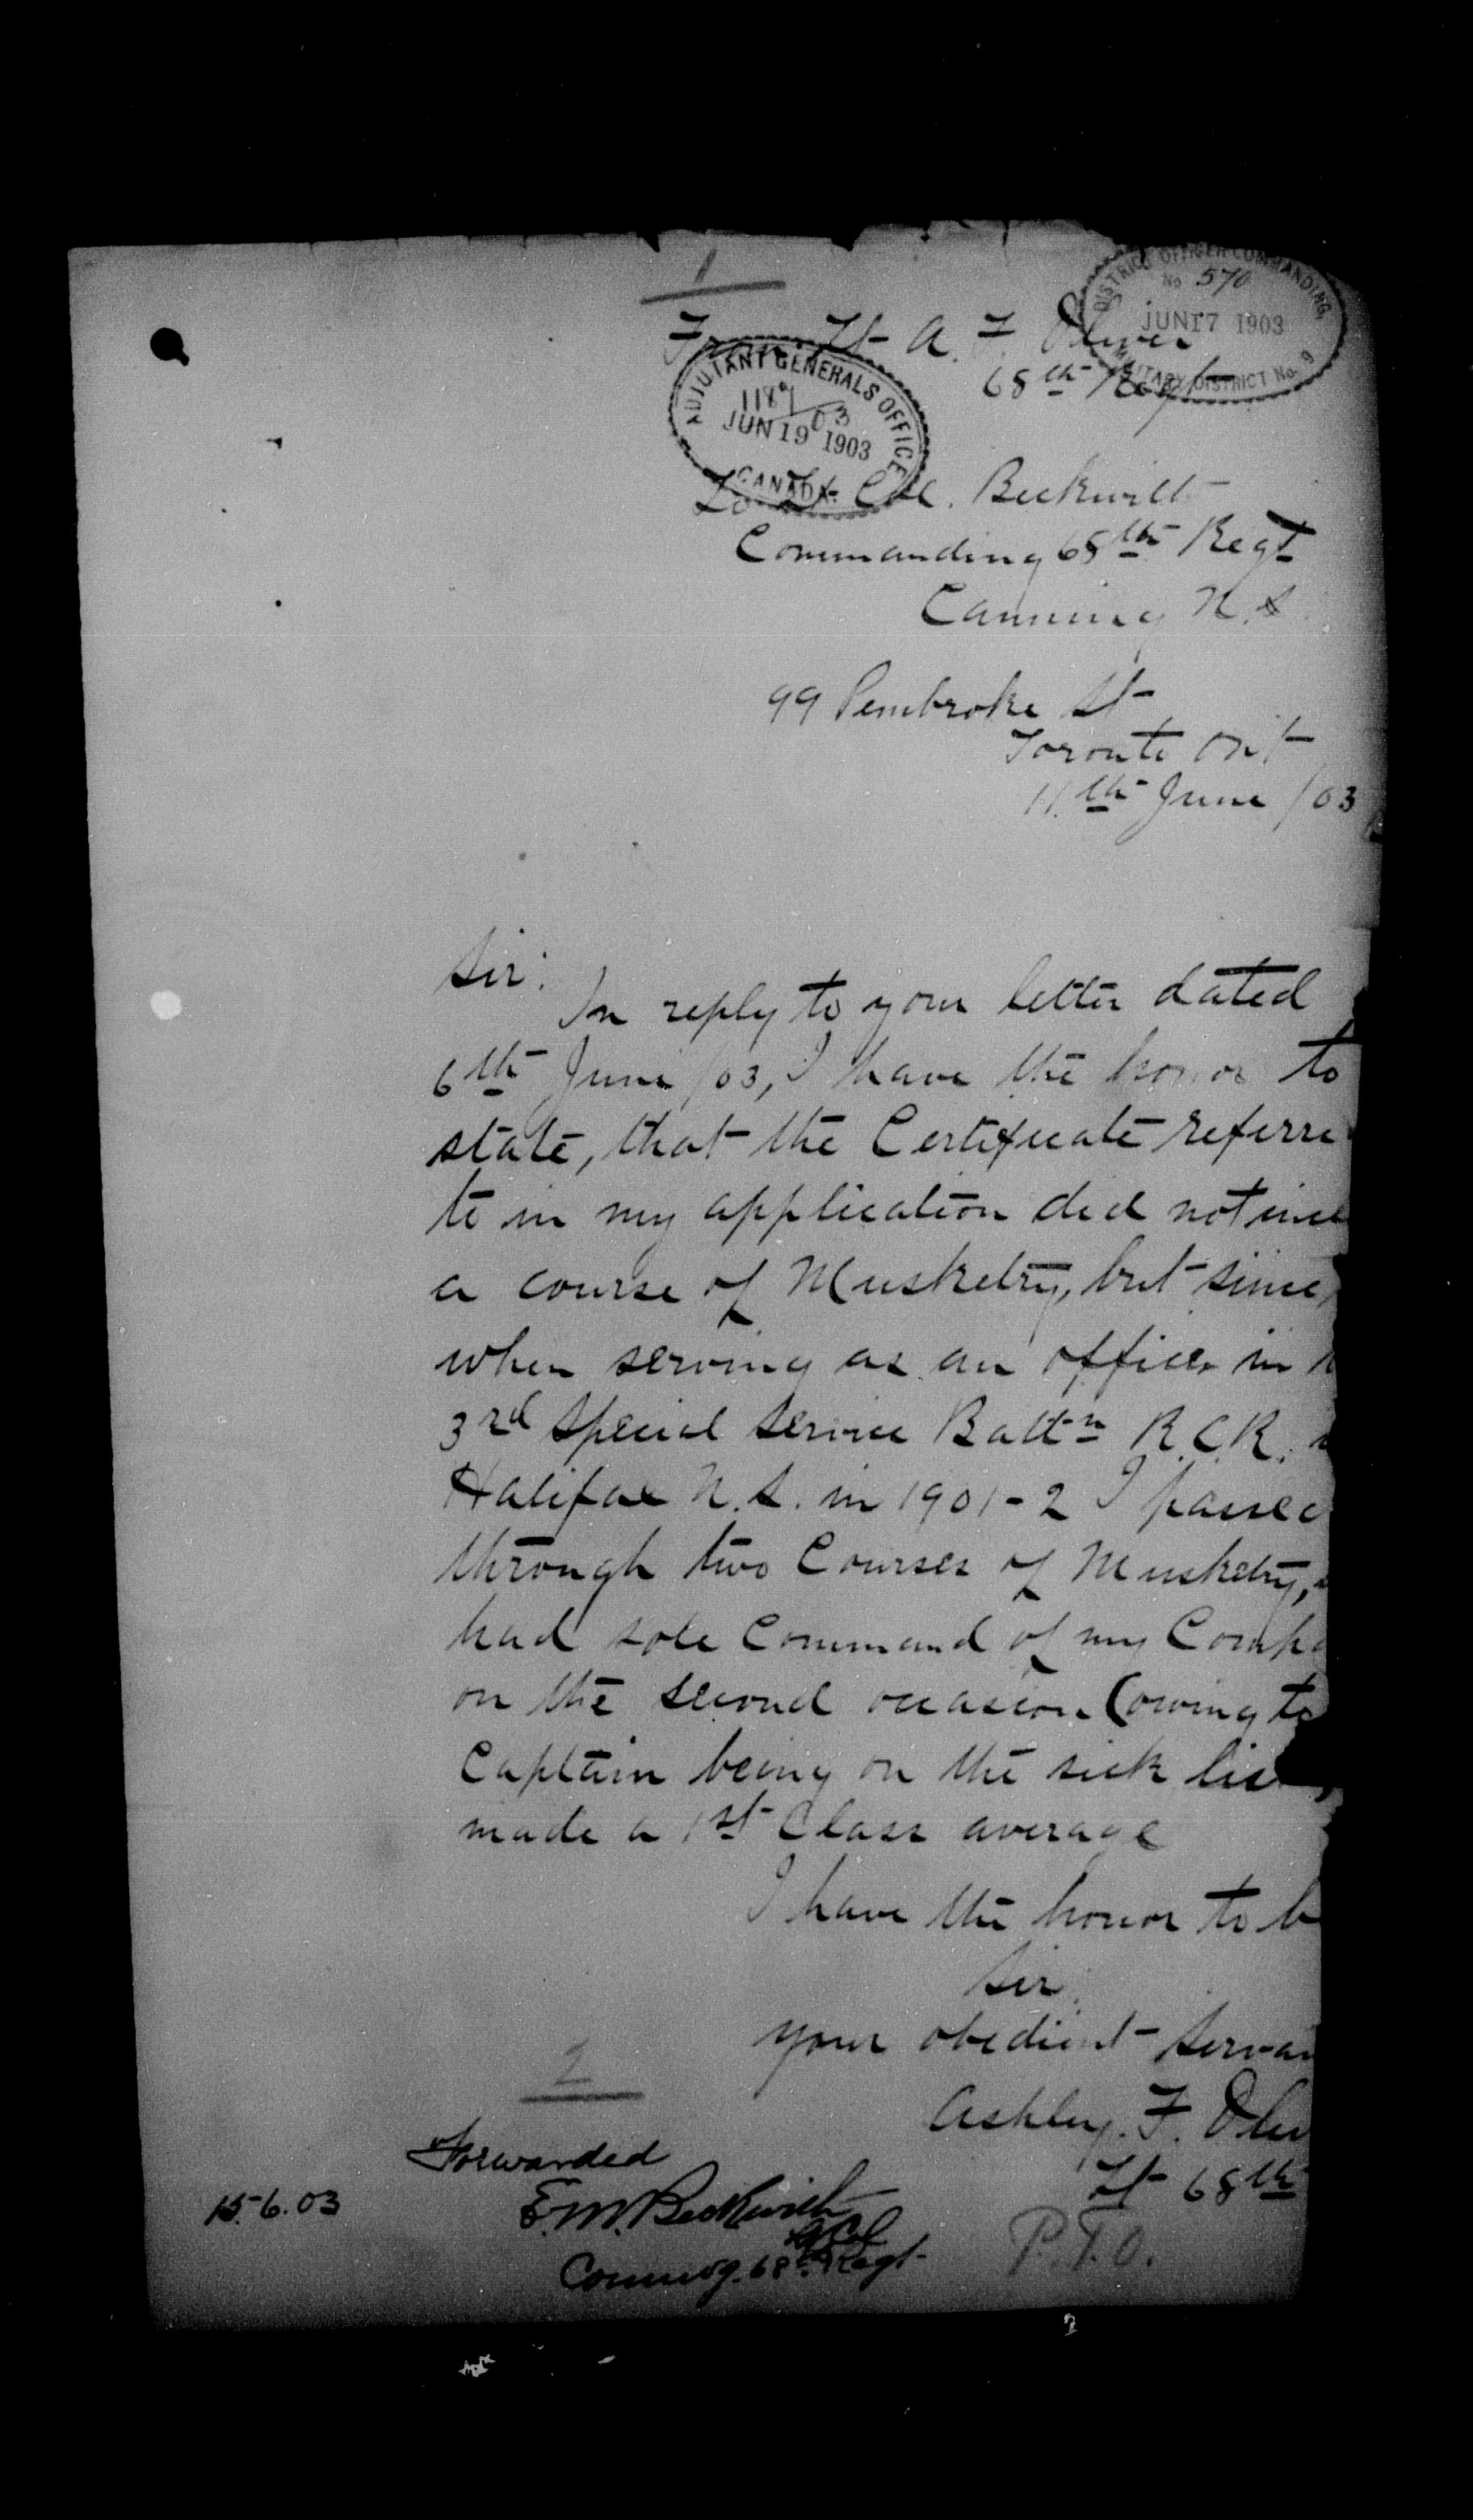 1
DISTRICT OFFICER COMMANDING,
No 570
JUN 17 1903
MILITARY DISTRICT No. 9
From Lt A. F. Oliver
68th Regt
ADJUTANT GENERALS OFFICE
JUN 19 1903
CANADA.
To Lt Col. Beckwith
Commanding 68th Regt
Canning N.S
99 Pembroke St
Toronto Ont
11th June /03
Sir:
In reply to your letter dated
6th June /03, I have the honor to
state, that the Certificate referre
to in my application did not incl
a course of Musketry, but since,
when serving as an officer in
3rd Special Service Battn R.C.R.
Halifax N.S. in 1901-2 I passed
through two Courses of Musketry,
had sole Command of my Compa
on the second occasion (owing to
Captain being on the sick lis
made a 1st Class average
I have the honor to b
Sir,
your obedient Servan
Ashley. F. Oliv
Lt 68th
2
Forwarded
15.6.03
E.M. Beckwith
Lt Col
Commdg. 68th Regt
P.T.O.